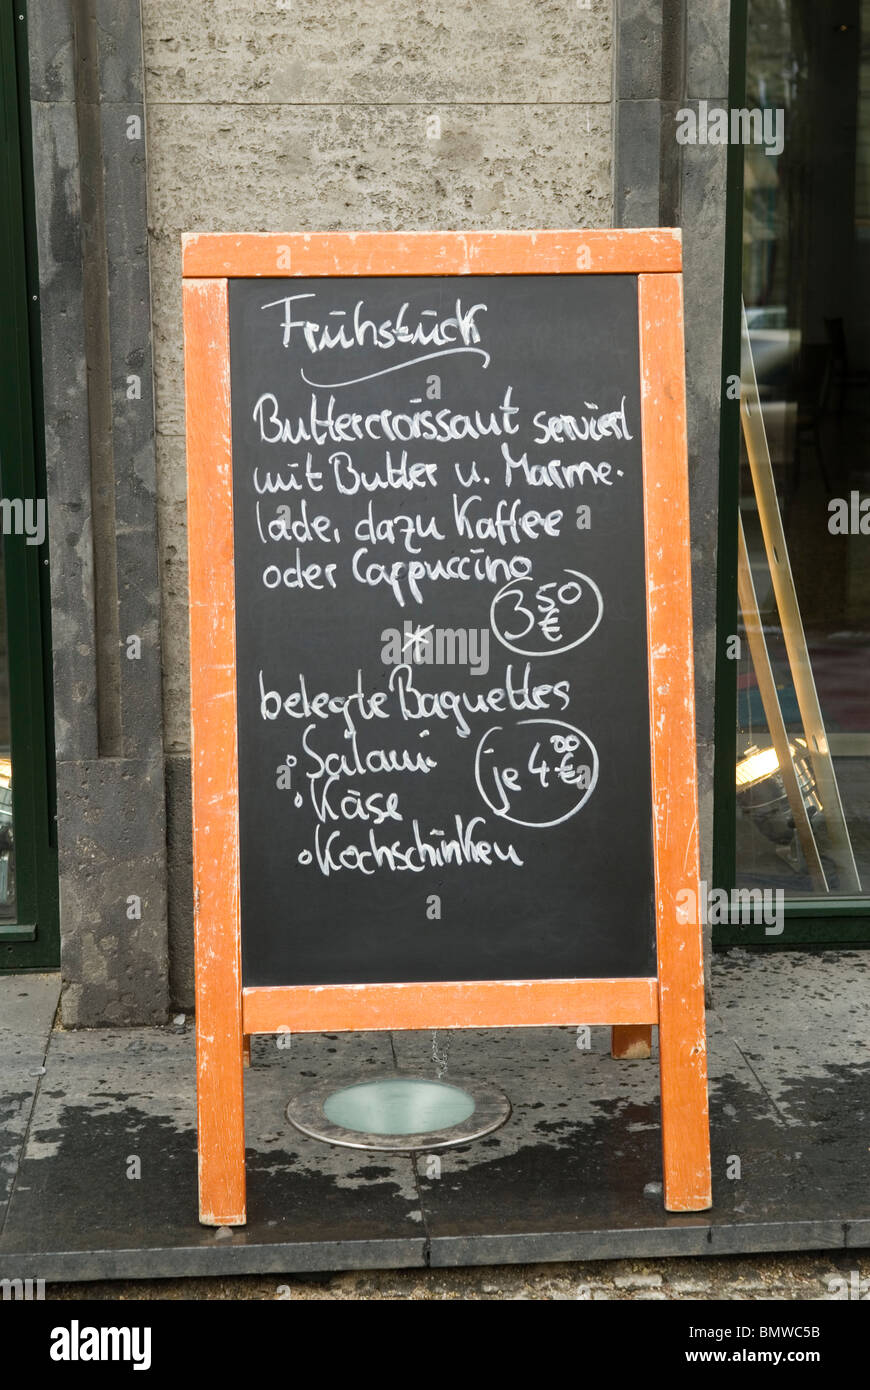 Frühstück
Buttercroissant serviert
mit Butter u. Marme-
lade, dazu Kaffee
oder Cappuccino
3 50 €
*
belegte Baguettes
Salami
je 4 00 €
Käse
Kochschinken
alamy
Image ID: BMWC5B
www.alamy.com